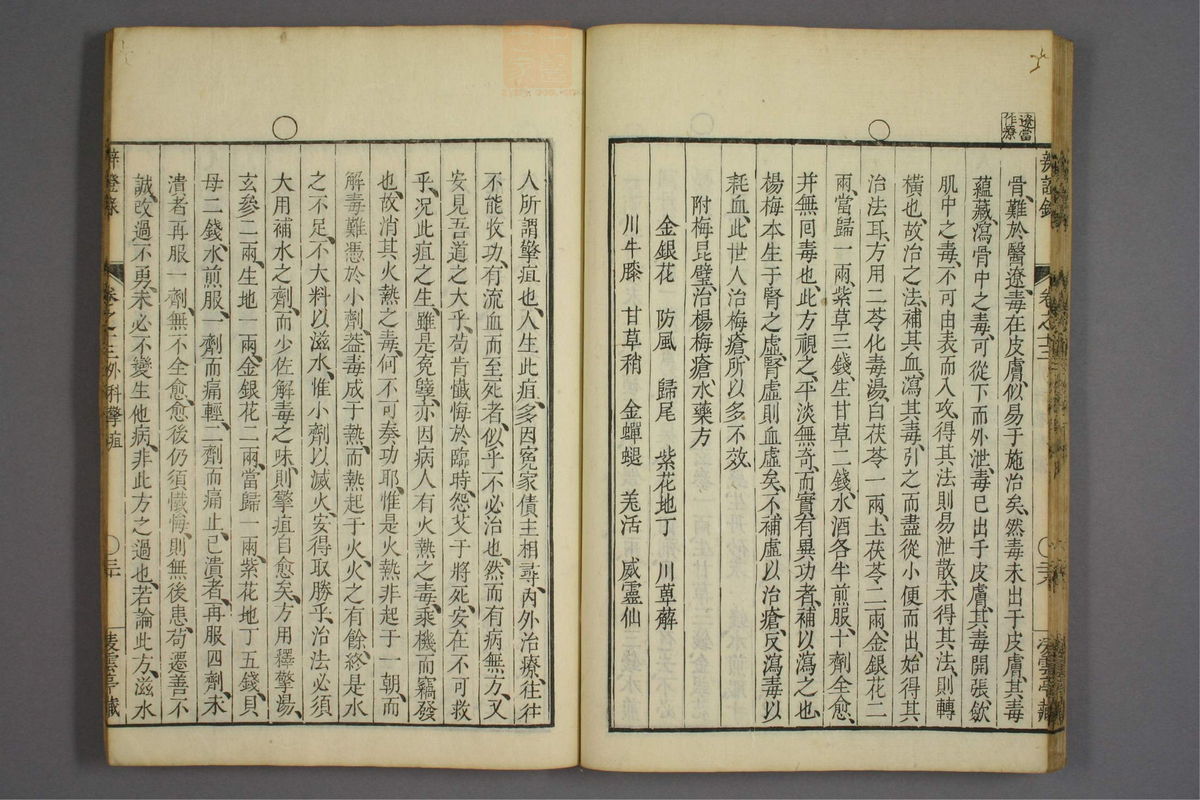 遼當
作療
辨證錄
卷之十三
凌雲亭藏
骨、難於醫遼、毒在皮膚、似易于施治矣、然毒未出于皮膚、其毒
蘊藏、瀉骨中之毒、可從下而外泄、毒已出于皮膚、其毒開張、斂
肌中之毒、不可由表而入攻、得其法則易泄散、未得其法、則轉
橫也、故治之法、補其血、瀉其毒、引之而盡從小便而出、始得其
治法耳、方用二苓化毒湯、白茯苓一兩、土茯苓二兩、金銀花二
兩、當歸一兩、紫草三錢、生甘草二錢、水酒各半煎服、十劑全愈、
并無回毒也、此方視之平淡無奇、而實有異功者、補以瀉之也、
楊梅本生于腎之虛、腎虛則血虛矣、不補虛以治瘡、反瀉毒以
耗血、此世人治梅瘡、所以多不效、
附梅昆璧、治楊梅瘡、水藥方
金銀花 防風 歸尾 紫花地丁 川萆薢
川牛膝 甘草稍 金蟬蛻 羌活 威靈仙
人所謂擎疽也、人生此疽、多因冤家債主相尋、內外治療、往往
不能收功、有流血而至死者、似乎不必治也、然而有病無方、又
安見吾道之大乎、苟肯懺悔於臨時、怨艾于將死、安在不可救
乎、況此疽之生、雖是冤孽、亦因病人有火熱之毒、乘機而竊發
也、故消其火熱之毒、何不可奏功耶、惟是火熱非起于一朝、而
解毒難憑於小劑、葢毒成于熱、而熱起于火、火之有餘、終是水
之不足、不大料以滋水、惟小劑以滅火、安得取勝乎、治法必須
大用補水之劑、而少佐解毒之味、則擎疽自愈矣、方用釋擎湯、
玄參二兩、生地一兩、金銀花二兩、當歸一兩、紫花地丁五錢、貝
母二錢、水煎服、一劑而痛輕、二劑而痛止、已潰者、再服四劑、未
潰者再服一劑、無不全愈、愈後仍須懺悔、則無後患、苟遷善不
誠、改過不勇、未必不變生他病、非此方之過也、若論此方、滋水
辨證錄
卷之十三 外科擎疽
凌雲亭藏